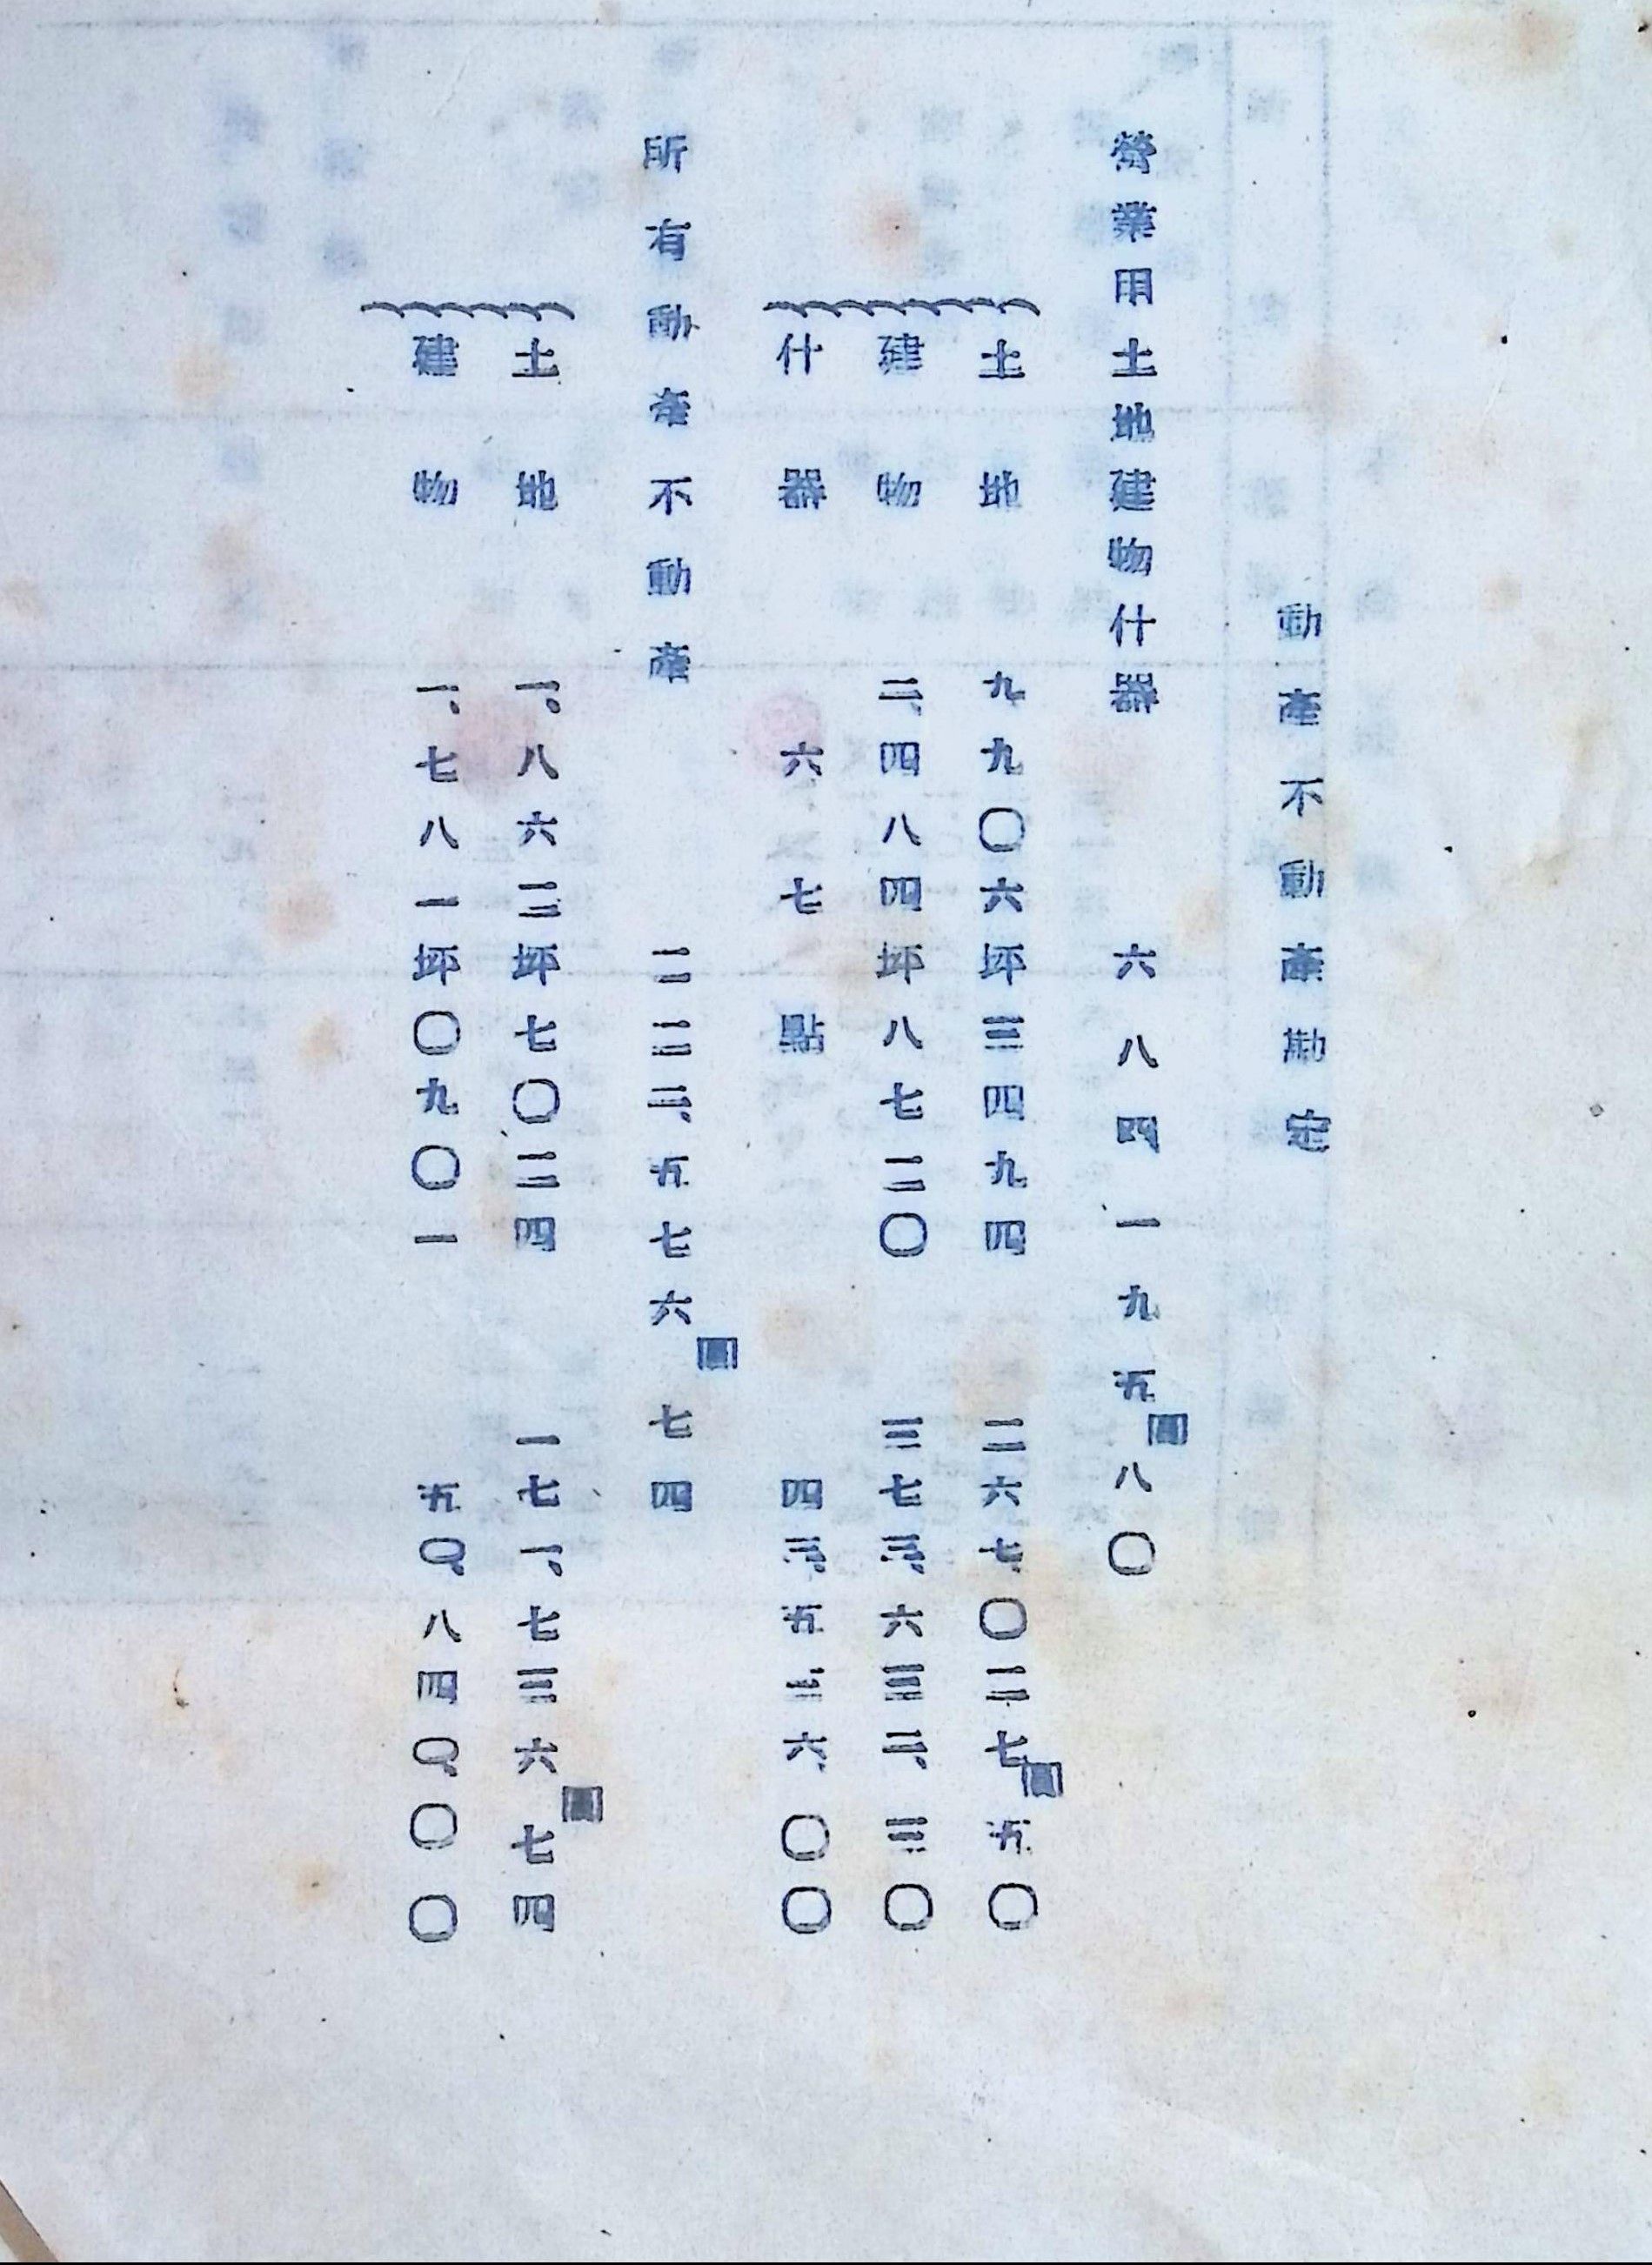 動產不動產勘定
營業用土地建物什器 六八四一九五圓八〇
土地 九九〇六坪三四九四 二六七、〇二七圓五〇
建物 二、四八四坪八七二〇 三七三、六三二、三〇
什器 六七點 四三、五三六、〇〇
所有動產不動產 二二二、五七六圓七四
土地 一、八六二坪七〇二四 一七一、七三六圓七四
建物 一、七八一坪〇九〇一 五〇、八四〇、〇〇